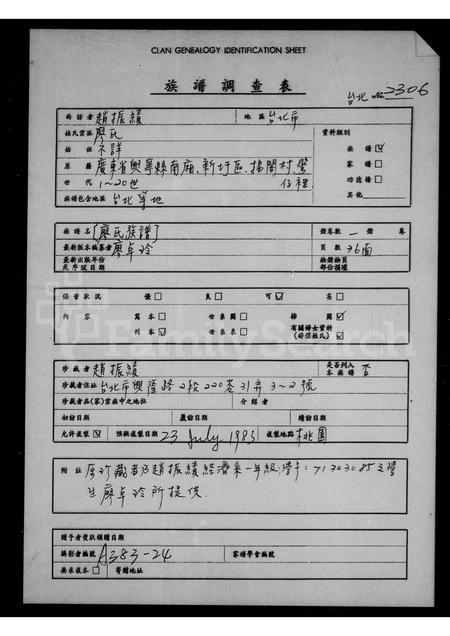 CLAN GENEALOGY IDENTIFICATION SHEET
族譜調查表
台北 No 2306
面訪者 趙振績 地區 台北市
姓氏宗派 廖氏 資料類別
始祖 不詳 族譜 ☑
原籍 廣東省興寧縣南廂、新圩區、楊閣村 家譜 □
世代 1~20世 仔裡 功德榜 □
族譜包含地區 台北等地 其他
族譜名 [廖氏族譜] 冊卷數 一 冊 卷
最新版本編纂者 廖卓玲 頁數 36面
最新出版年份
及序跋日期
保管狀況 優 □ 良 □ 可 ☑ 劣 □
內容 寫本 □ 世系圖 □ 排闆 ☑
刊本 ☑ 世系表 □ 有關婦女資料 ☑
(存信姓氏)
珍藏者 趙振績 是否列入
本族譜 否
珍藏者住址 台北市興隆路2段220巷31弄3~2號
珍藏者在(家)宗族中之地位 介紹者
初訪日期 復訪日期 續訪日期
允許複製 ☑ 預擬複製日期 23 July 1983 複製地點 桃園
附註 原珍藏者乃趙振績經濟系一年級,學號:71303085之學
生廖卓玲所提供.
贈予者獎狀頒贈日期
攝影者編號 A383-24 家譜學會編號
要求複本 □ 寄贈地址
FamilySearch